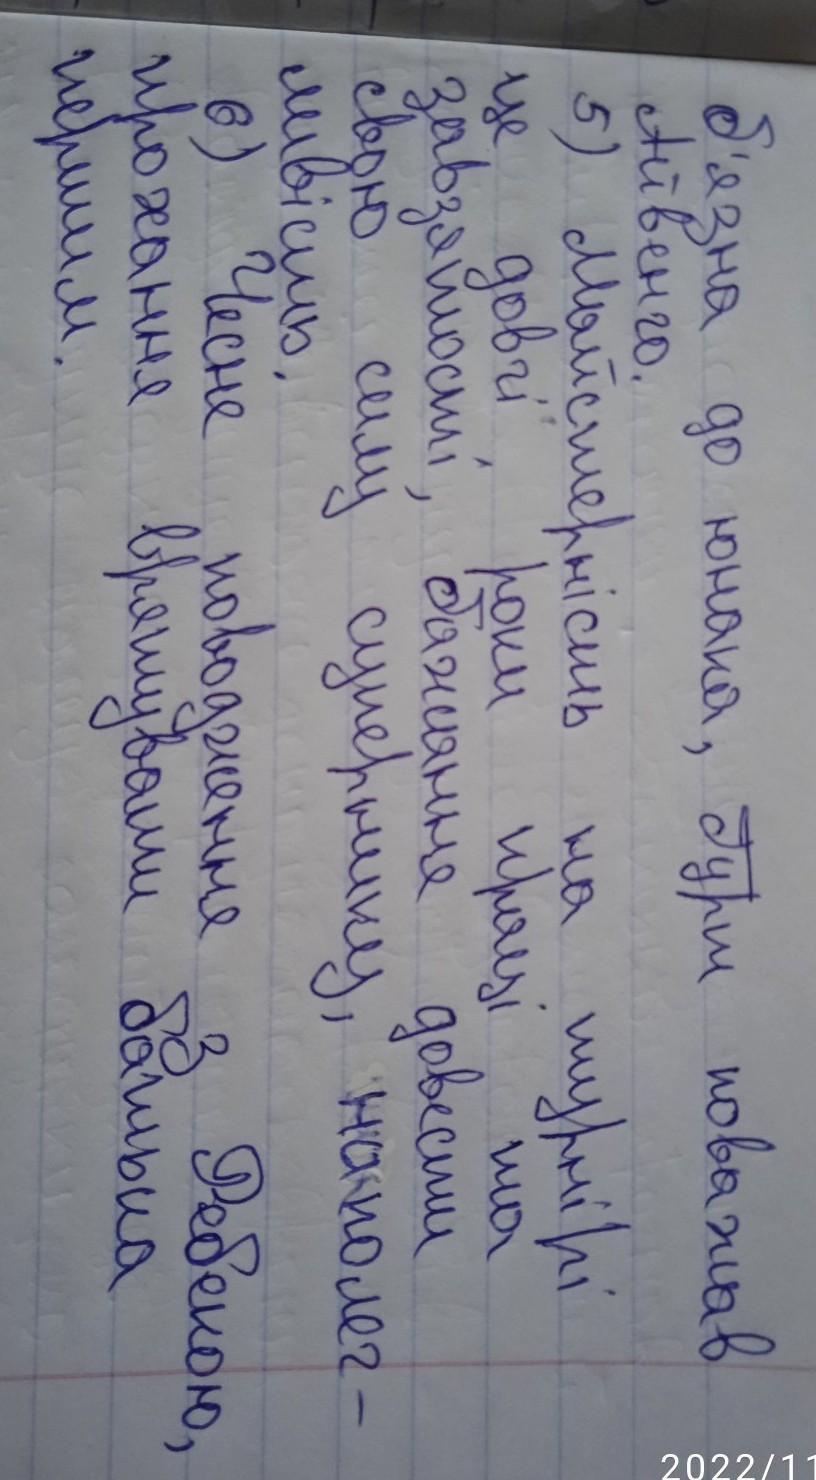 б'язна до юнака, Гурт поважав
Айвенго.
5) Майстерність на турнірі
це довгі роки праці та
завзятості, бажання довести
свою силу супернику, наполег-
ливість.
6) Чесне поводження з Ребекою,
прохання врятувати батька
першим.
2022/11